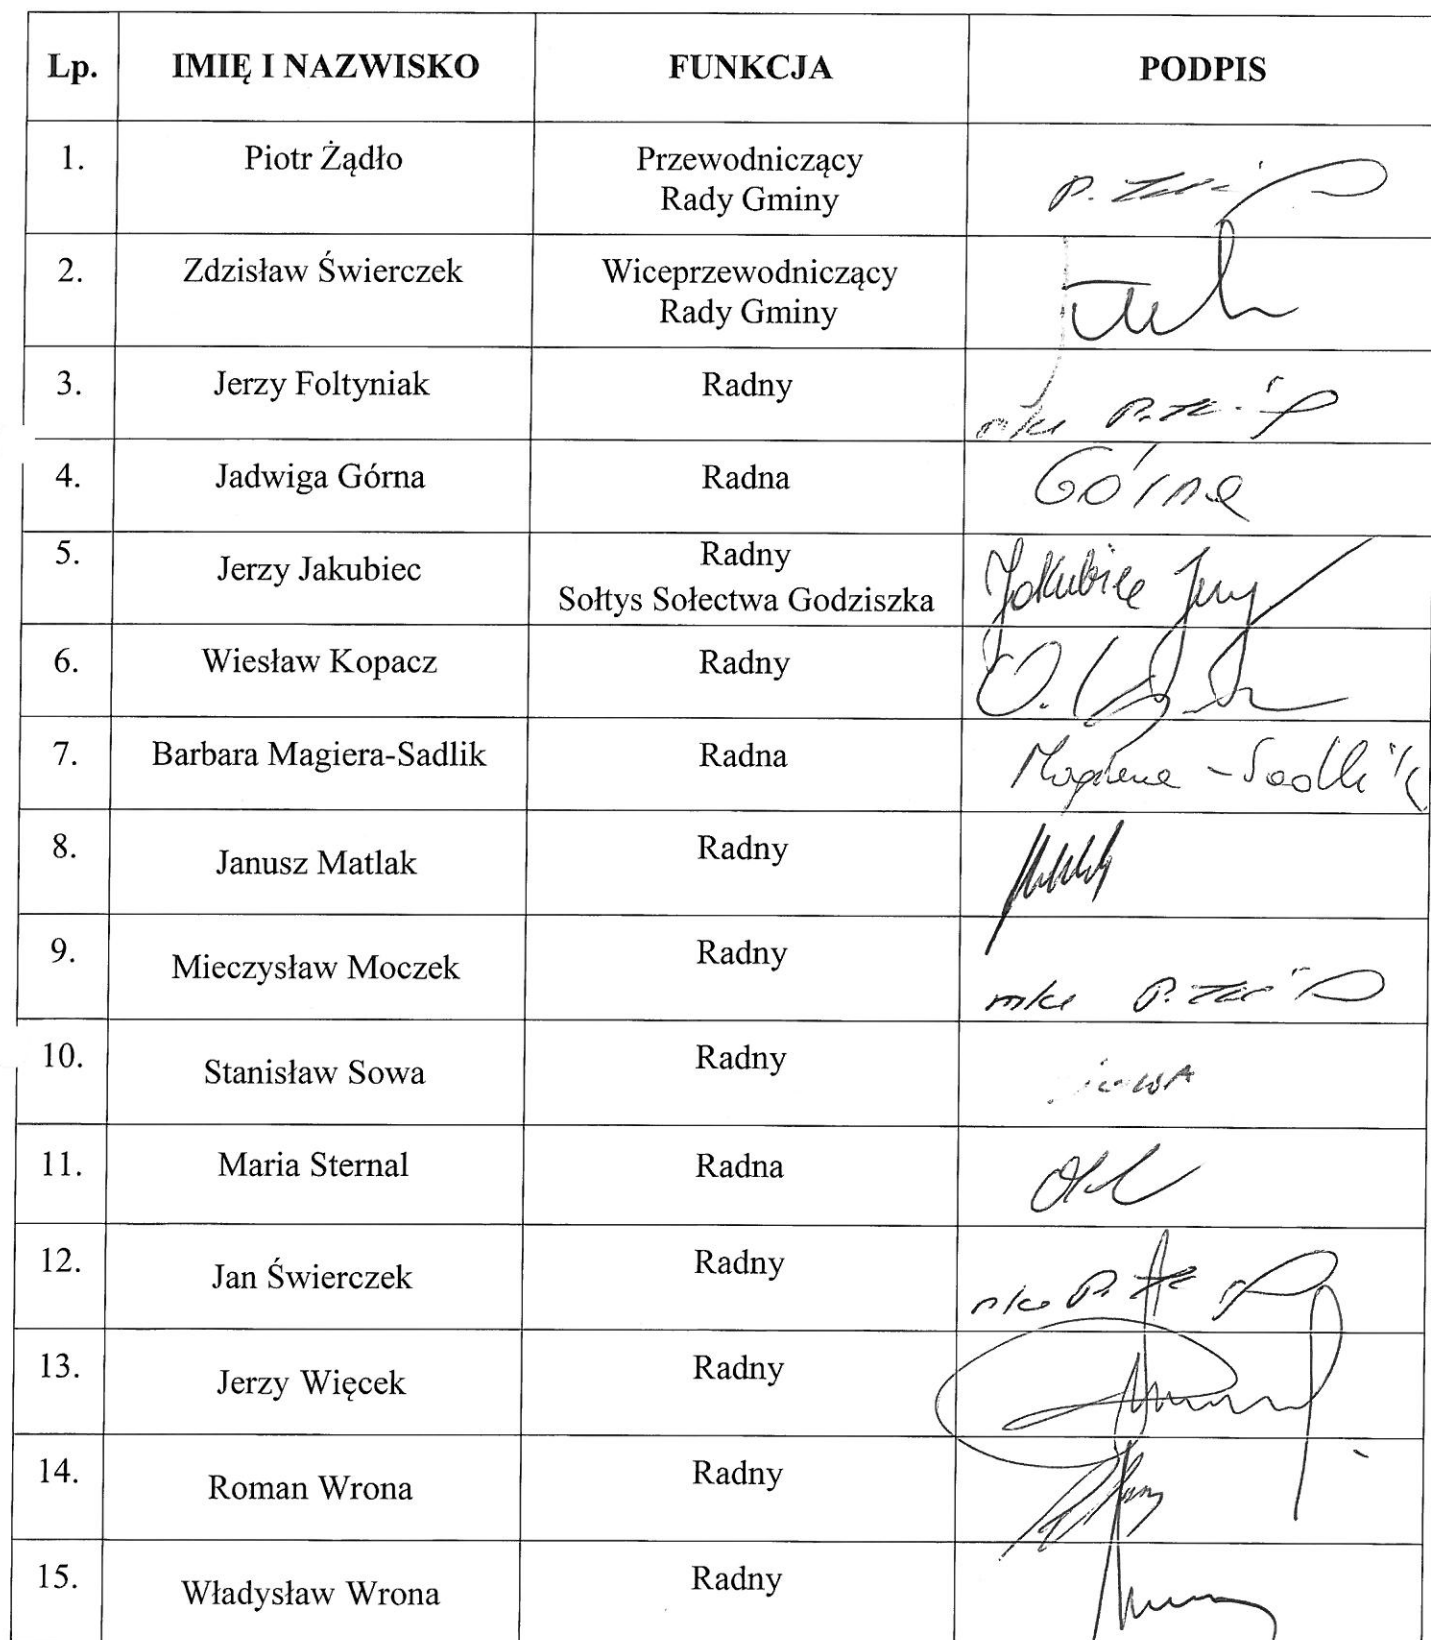 Lp. IMIĘ I NAZWISKO FUNKCJA PODPIS
1. Piotr Żądło Przewodniczący
Rady Gminy
2. Zdzisław Świerczek Wiceprzewodniczący
Rady Gminy
3. Jerzy Foltyniak Radny
4. Jadwiga Górna Radna Górna
5. Jerzy Jakubiec Radny
Sołtys Sołectwa Godziszka Jakubiec Jerzy
6. Wiesław Kopacz Radny
7. Barbara Magiera-Sadlik Radna Magiera-Sadlik
8. Janusz Matlak Radny
9. Mieczysław Moczek Radny
10. Stanisław Sowa Radny
11. Maria Sternal Radna
12. Jan Świerczek Radny
13. Jerzy Więcek Radny
14. Roman Wrona Radny
15. Władysław Wrona Radny